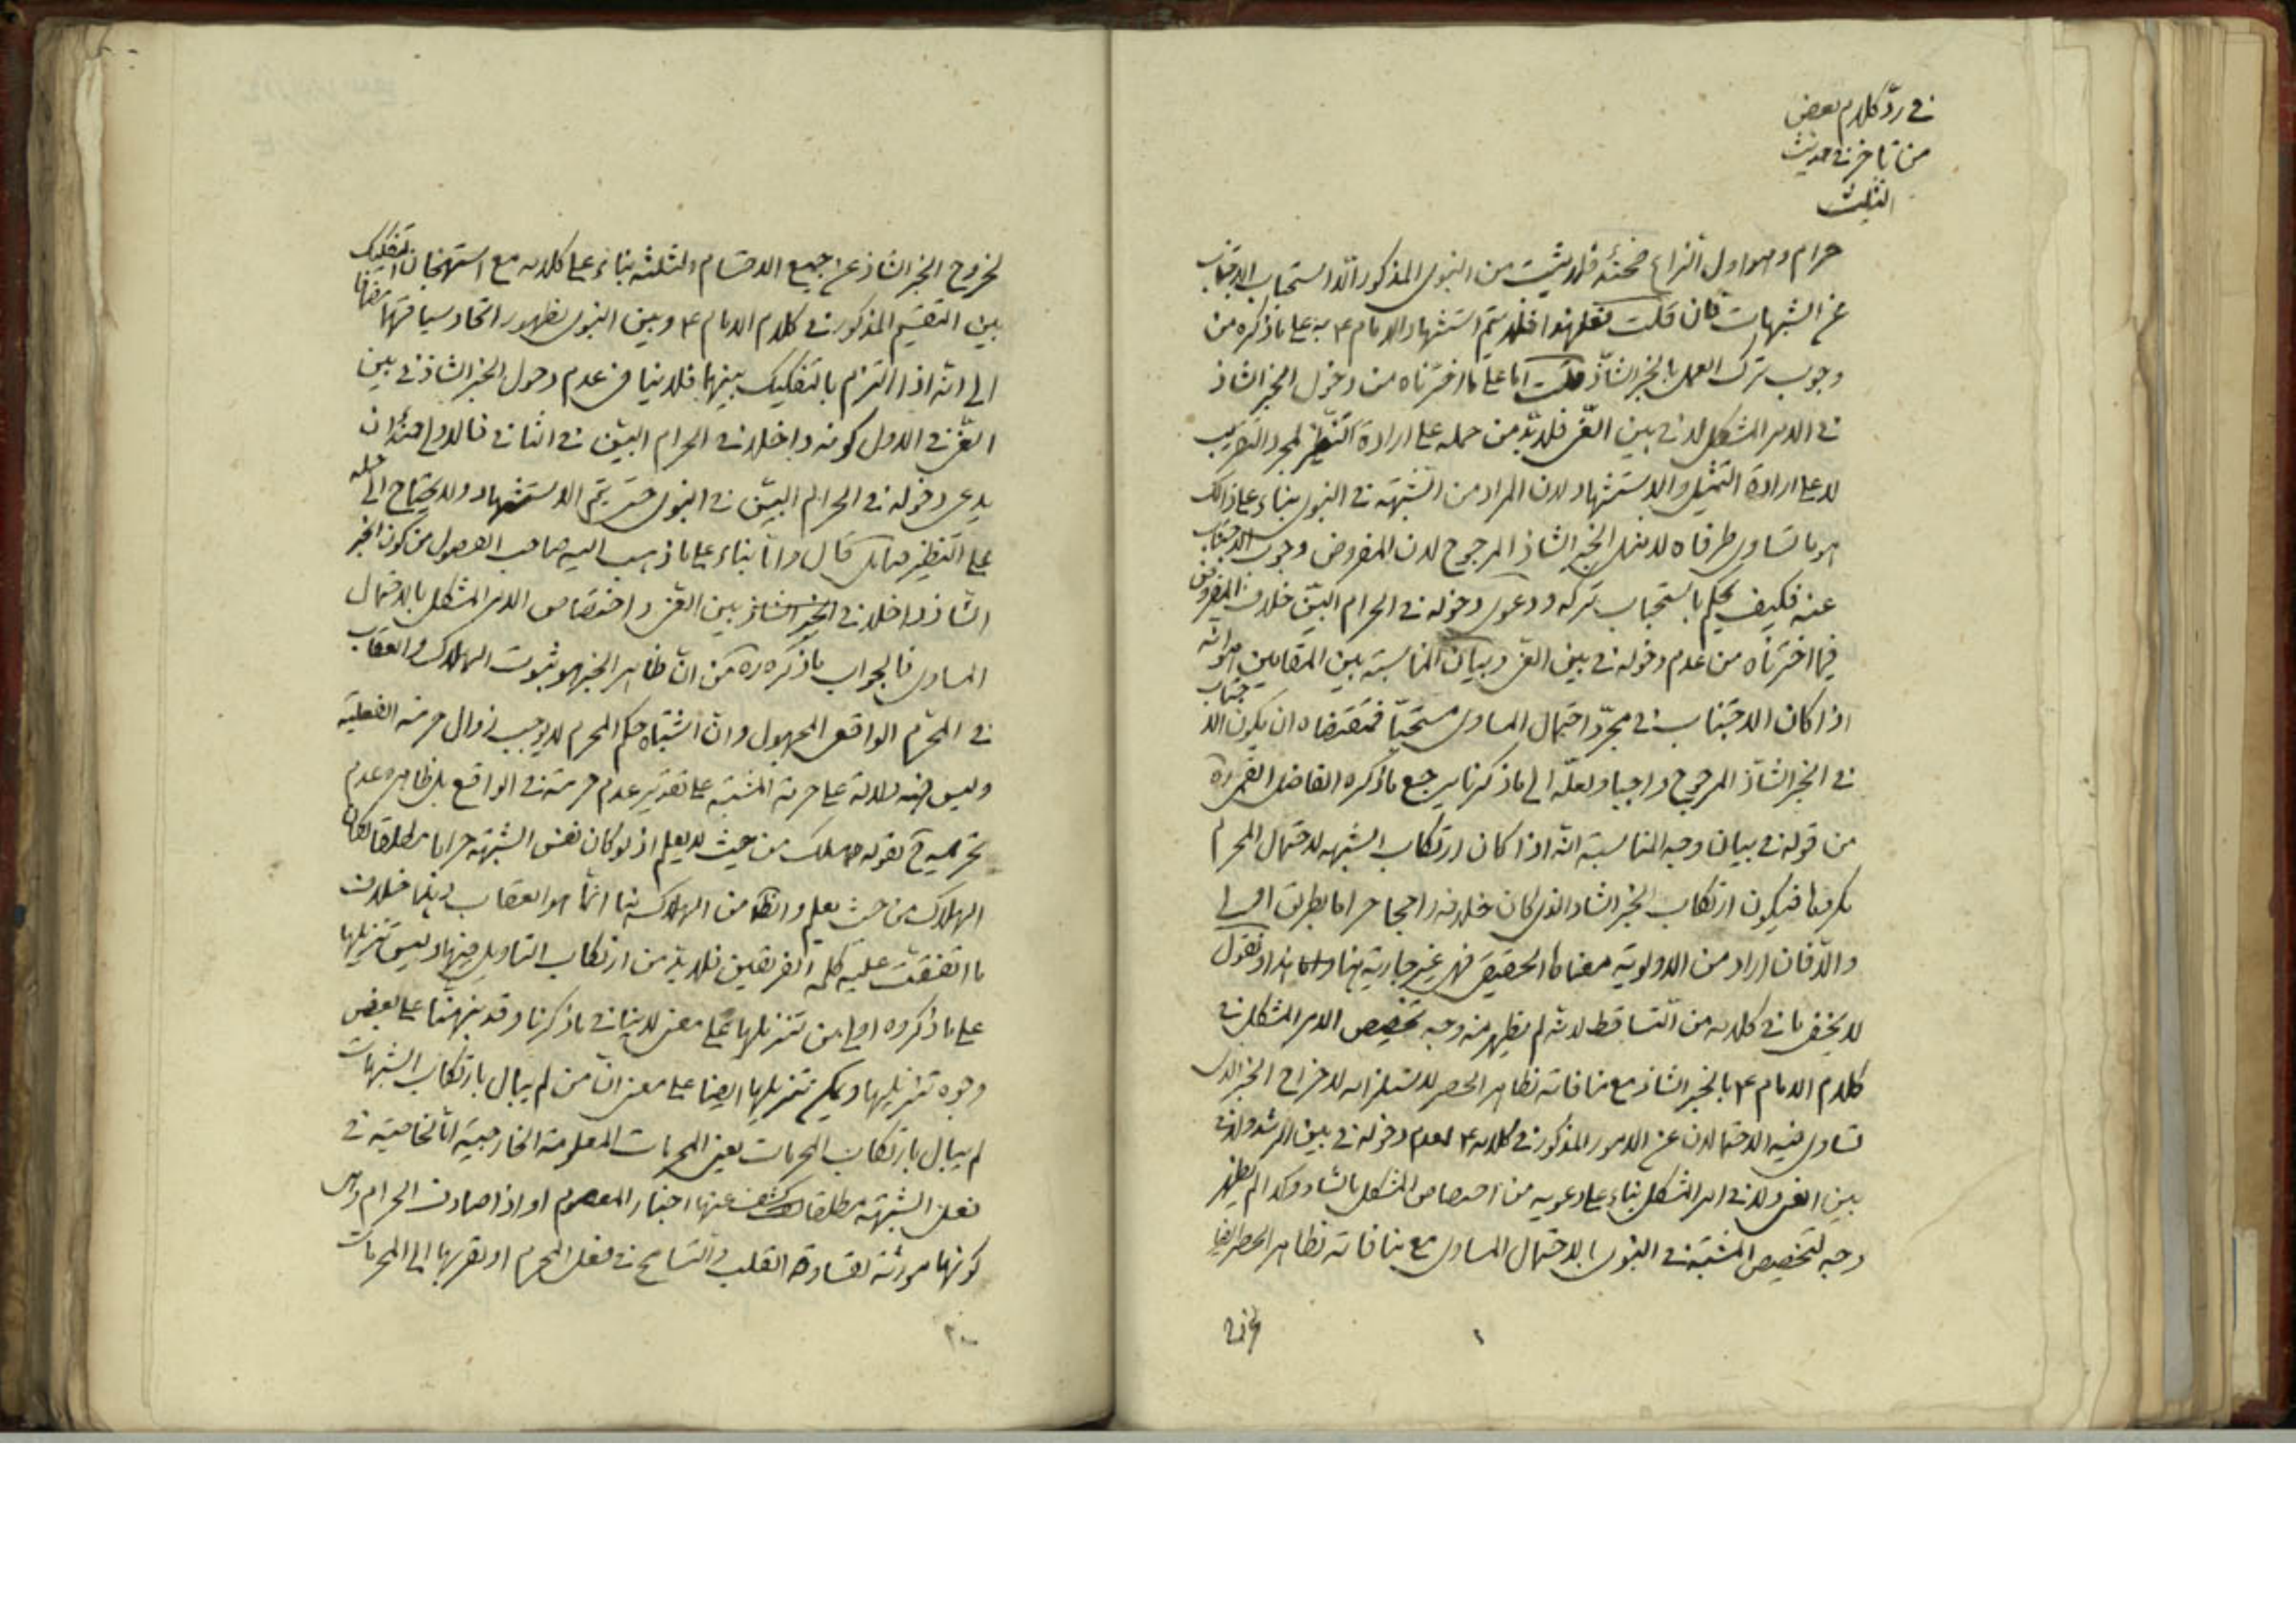 في ردّ كلام بعض
من تاخر في حديث
التثليث
حرام وهو اول النزاع فحينئذ فلا يثبت من النبوى المذكور الا استحباب الاجتناب
عن الشبهات فان قلت فعلى هذا فلا يتم استشهاد الامام ع به على ما ذكره من
وجوب ترك العمل بالخبر الشاذ قلت اما على ما اخترناه من دخول الخبر الشاذ
في الامر المشكل لا في بين الغىّ فلا بدّ من حمله على ارادة التنظير لمجرد التقريب
لا على ارادة التمثيل والاستشهاد لان المراد من الشبهة في النبوى بناء على ذلك
هو ما تساوى طرفاه لا مثل الخبر الشاذ المرجوح لان المفروض وجوب الاجتناب
عنه فكيف يحكم باستحباب تركه ودعوى دخوله في الحرام البيّن خلاف المفروض
فيما اخترناه من عدم دخوله في بين الغى وبيان المناسبة بين المقامين هو انه
اذا كان الاجتناب في مجرّد احتمال المساوى مستحبّا فمقتضاه ان يكون الاجتناب
في الخبر الشاذّ المرجوح واجبا ولعلّه الى ما ذكرنا يرجع ما ذكره الفاضل القمى ره
من قوله في بيان وجه المناسبة انّه اذا كان ارتكاب الشبهه لاحتمال المحرم
مكروها فيكون ارتكاب الخبر الشاذ الذى كان خلافه راجحا حراما بطريق اولى
والّا فان اراد من الاولوية معناها الحقيقى فهى غير جارية هنا هذا ونقول
لا يخفى ما في كلامه من التساقط لانه لم يظهر منه وجه تخصيص الامر المشكل في
كلام الامام ع بالخبر الشاذ مع منافاته لظاهر الحصر لاستلزامه لاخراج الخبر الذى
تساوى فيه الاحتمالان عن الامور المذكور في كلامه ع لعدم دخوله في بين الرشد ولا في
بين الغى ولا في امر المشكل بناء على دعويه من اختصاص المشكل بالشاذ وكذا لم يظهر
وجه لتخصيص المشتبه في النبوى بالاحتمال المساوى مع منافاته لظاهر الحصر ايضا
لخروج الخبر الشاذ عن جميع الاقسام الثلثة بناء على كلامه مع استهجان التفكيك
بين التقسيم المذكور في كلام الامام ع وبين النبوى لظهور اتحاد سياقهما مضافا
الى انّه اذا التزم بالتفكيك بينهما فلا ينافى عدم دخول الخبر الشاذ في بين
الغىّ في الاول كونه داخلا في الحرام البيّن في الثانى فالاولى حينئذ ان
يدعى دخوله في الحرام البيّن في النبوى حتى يتم الاستشهاد ولا يحتاج الى حمله
على التنظير قال وامّا بناء على ما ذهب اليه صاحب الفصول من كون الخبر
الشاذ داخلا في بين الغى واختصاص الامر المشكل بالاحتمال
المساوى فالجواب ما ذكره ره من انّ ظاهر الخبر هو ثبوت الهلاك والعقاب
في المحرّم الواقعى المجهول وانّ اشتباه حكم المحرم لا يوجب زوال حرمته الفعلية
وليس فيه دلالة على حرمة المشتبه على تقدير عدم حرمته في الواقع بل ظاهره عدم
تحريمه ح لقوله هلك من حيث لا يعلم اذ لو كان نفس الشبهة حراما مطلقا لكان
الهلاك من حيث يعلم والظ من الهلاك هنا انّما هو العقاب
ما اتفقت عليه كلمة الفريقين فلا بدّ من ارتكاب التاويل فيها وليس تنزيلها
على ما ذكروه اولى من تنزيلها على معنى لا ينافى ما ذكرنا وقد نبهنا على بعض
وجوه تنزيلها ويمكن تنزيلها ايضا على معنى انّ من لم يبال بارتكاب الشبهات
لم يبال بارتكاب المحرمات يعنى المحرمات المعلومة الخارجية امّا لخاصية في
فعل الشبهة مطلقا كشف عنها اخبار المعصوم او اذا صادف الحرام
كونها مورثة لقساوة القلب والتسامح في فعل المحرم او لقربها الى المحرمات